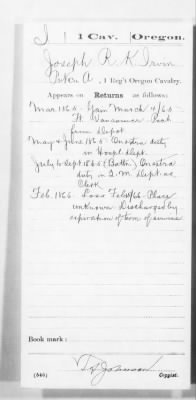 I | 1 Cav. | Oregon.
Joseph R. K. Irvin
Pvt. Co. A, 1 Reg't Oregon Cavalry.
Appears on Returns as follows:
Mar 1865 - Gain March 4/65
Ft. Vancouver -
from Depot
May & June 1865 - On extra duty
in Hospl. Dept.
July to Sept 1865 (Battn.) On extra
duty in Q. M. Dept. as
Clerk
Feb. 1866 - Loss Feb /66 - Place
unknown Discharged by
expiration of term of service
Book mark:
Johnson
(546) Copyist.